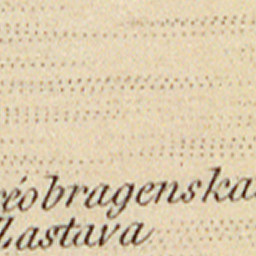 réobragenska
Zastava